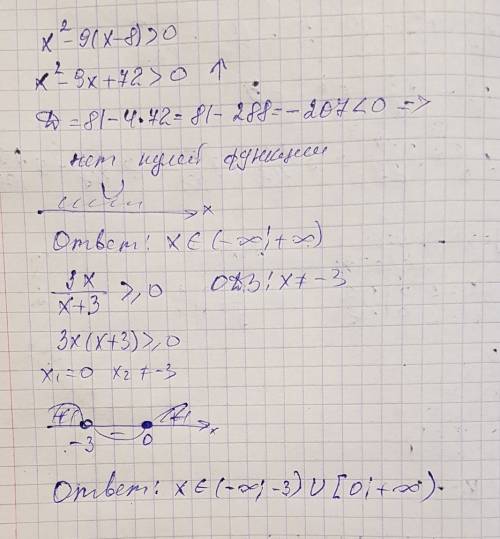 x² - 9(x-8) > 0
x² - 9x + 72 > 0 ↑
D = 81 - 4·72 = 81 - 288 = -207 < 0 =>
нет нулей функции
x
Ответ: x ∈ (-∞; +∞)
3x/(x+3) ≥ 0 ОДЗ: x ≠ -3
3x(x+3) ≥ 0
x₁ = 0 x₂ ≠ -3
+ - + x
-3 0
Ответ: x ∈ (-∞; -3) ∪ [0; +∞).